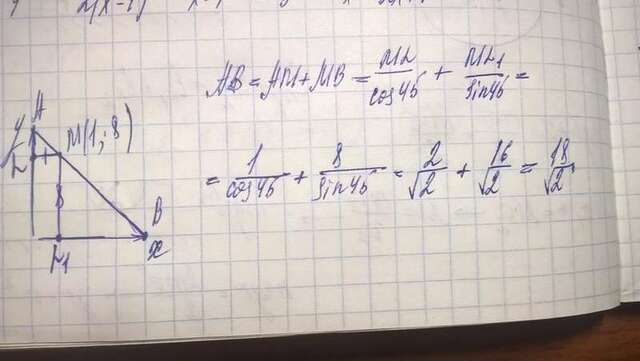 AB = AM + MB = ML/cos45 + ML₁/sin45 =
= 1/cos45 + 8/sin45 = 2/√2 + 16/√2 = 18/√2
y A
M(1; 8)
L
B
L₁
x